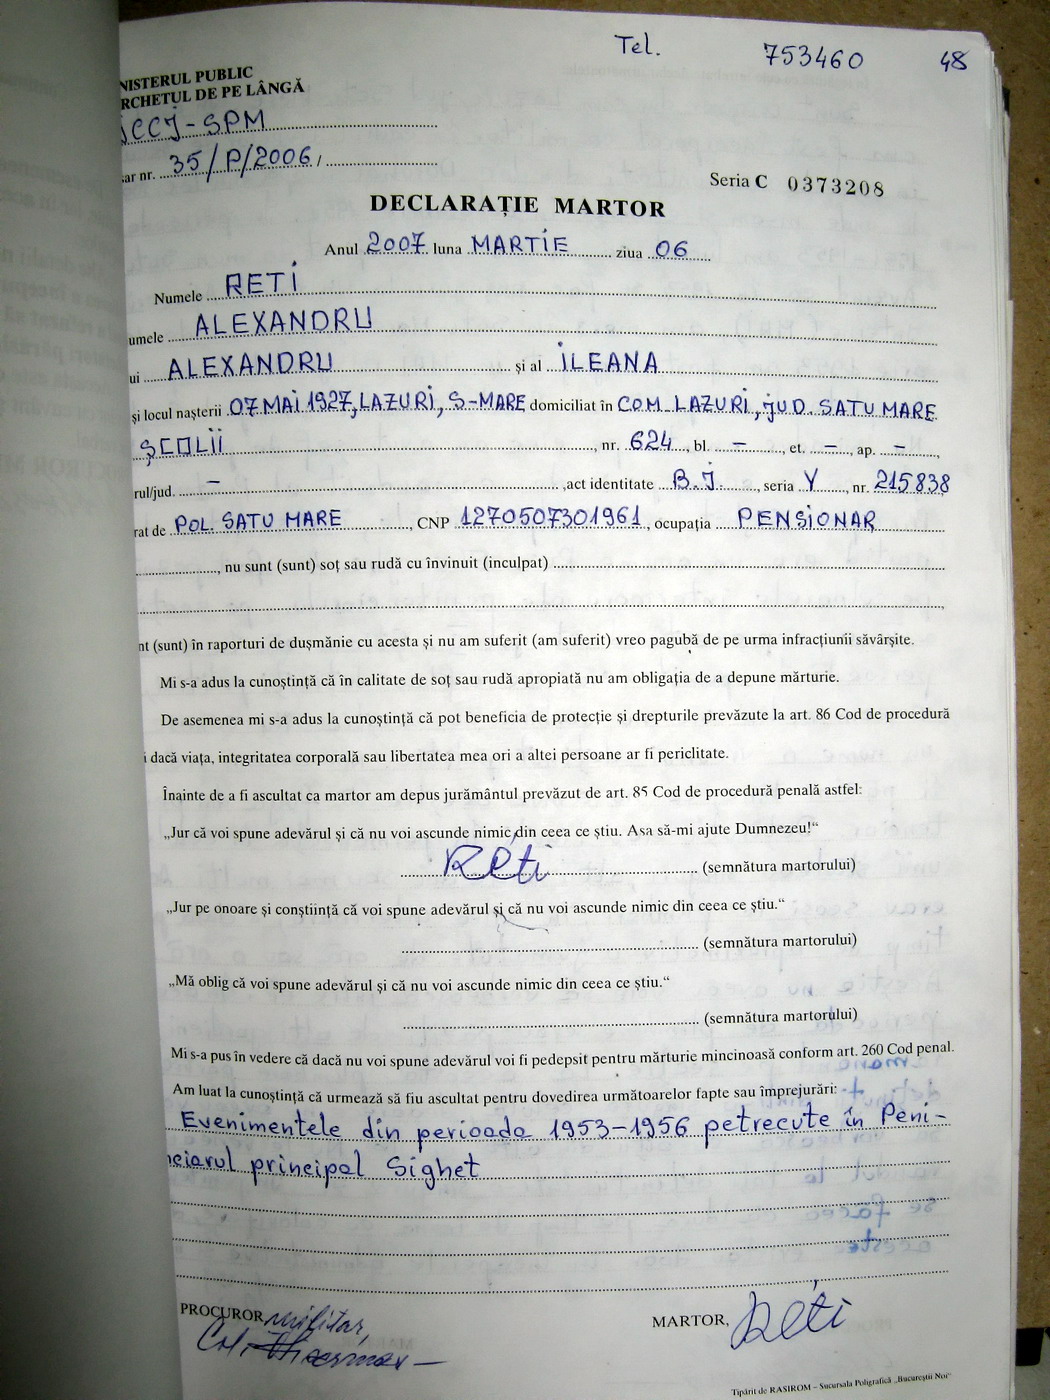 Tel. 753460 48
NISTERUL PUBLIC
RCHETUL DE PE LÂNGĂ
ÎCCJ-SPM
ar nr. 35/P/2006 /
Seria C 0373208
DECLARAȚIE MARTOR
Anul 2007 luna MARTIE ziua 06
Numele RETI
umele ALEXANDRU
ui ALEXANDRU și al ILEANA
și locul nașterii 07 MAI 1927, LAZURI, S-MARE domiciliat în COM. LAZURI, JUD. SATU MARE
ȘCOLII, nr. 624, bl. –, et. –, ap. –,
rul/jud. – ,act identitate B.I., seria Y, nr. 215838
rat de POL. SATU MARE, CNP 1270507301961, ocupația PENSIONAR
, nu sunt (sunt) soț sau rudă cu învinuit (inculpat)
nt (sunt) în raporturi de dușmănie cu acesta și nu am suferit (am suferit) vreo pagubă de pe urma infracțiunii săvârșite.
Mi s-a adus la cunoștință că în calitate de soț sau rudă apropiată nu am obligația de a depune mărturie.
De asemenea mi s-a adus la cunoștință că pot beneficia de protecție și drepturile prevăzute la art. 86 Cod de procedură
i dacă viața, integritatea corporală sau libertatea mea ori a altei persoane ar fi periclitate.
Înainte de a fi ascultat ca martor am depus jurământul prevăzut de art. 85 Cod de procedură penală astfel:
„Jur că voi spune adevărul și că nu voi ascunde nimic din ceea ce știu. Asa să-mi ajute Dumnezeu!“
Réti (semnătura martorului)
„Jur pe onoare și conștiință că voi spune adevărul și că nu voi ascunde nimic din ceea ce știu.“
(semnătura martorului)
„Mă oblig că voi spune adevărul și că nu voi ascunde nimic din ceea ce știu.“
(semnătura martorului)
Mi s-a pus în vedere că dacă nu voi spune adevărul voi fi pedepsit pentru mărturie mincinoasă conform art. 260 Cod penal.
Am luat la cunoștință că urmează să fiu ascultat pentru dovedirea următoarelor fapte sau împrejurări:
Evenimentele din perioada 1953-1956 petrecute în Peni-
nciarul principal Sighet
PROCUROR militar, MARTOR, Réti
Col.
Tipărit de RASIROM – Sucursala Poligrafică „Bucureștii Noi“